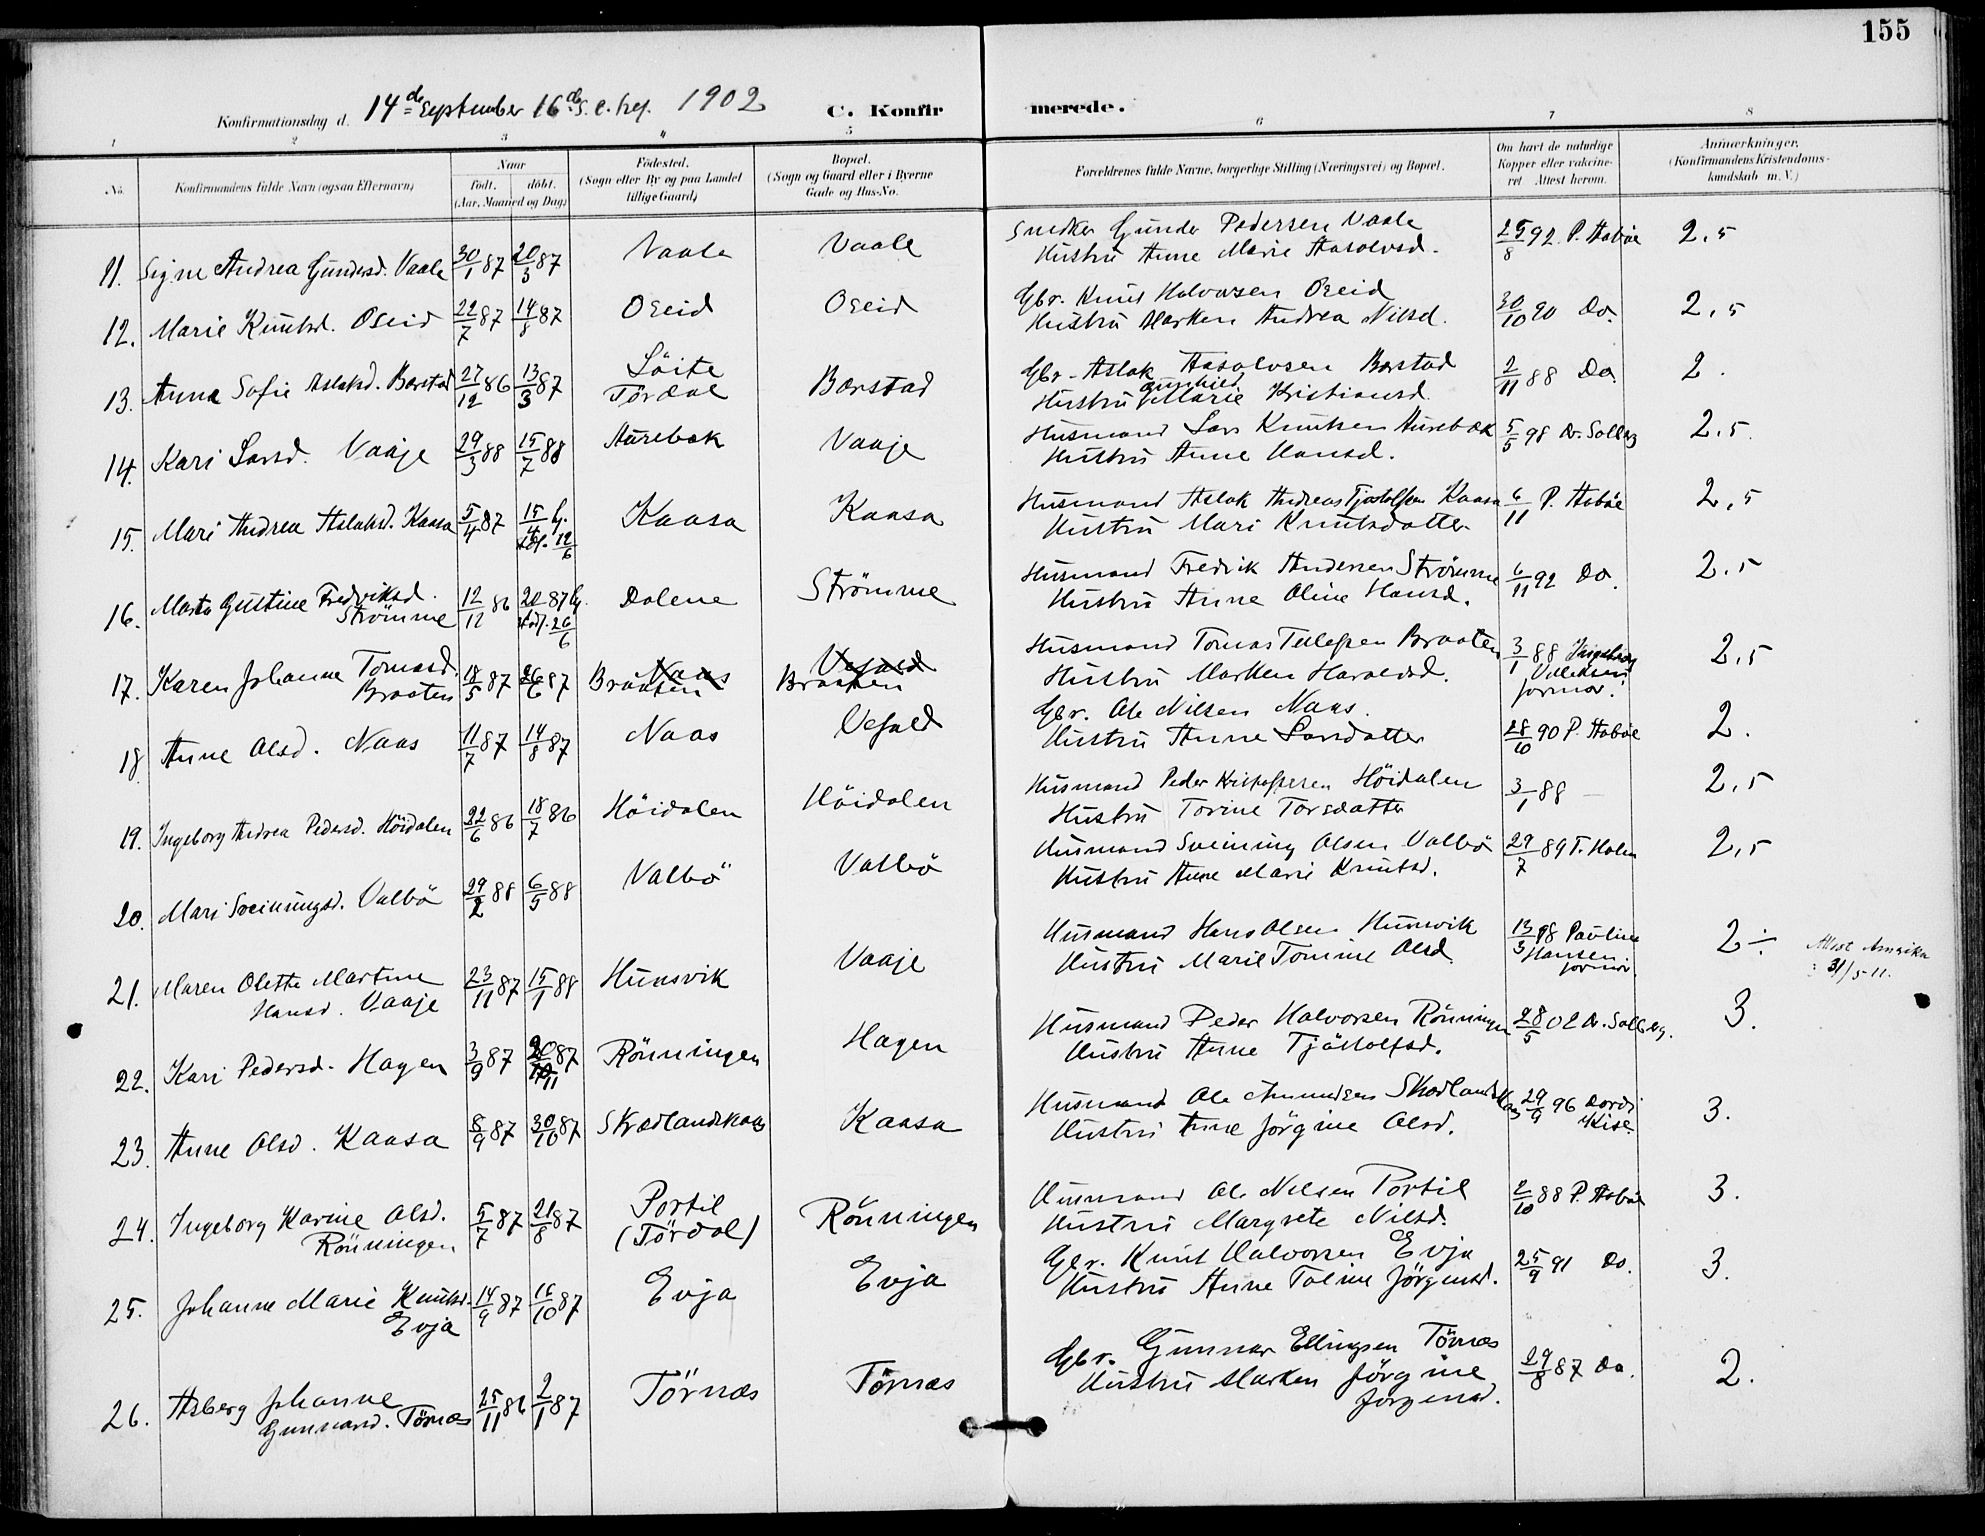 155
Konfirmationsdag d. 14de September 16de S. e. tref. 1902 C. Konfirmerede.
1 2 3 4 5 6 7 8
No. Konfirmandens fulde Navn (ogsaa Efternavn) Naar født. døbt. (Aar, Maaned og Dag) Fødested. (Sogn eller By og paa Landet tillige Gaard) Bopæl. (Sogn og Gaard eller i Byerne Gade og Hus-No. Forældrenes fulde Navne, borgerlige Stilling (Næringsvei) og Bopæl. Om havt de naturlige Kopper eller vaccineret Attest herom. Anmærkninger. (Konfirmandens Kristendomskundskab m. V.)
11. Signe Andrea Gundersd. Vaale 30/1 87 20/3 87 Vaale Vaale Snedker Gunder Pedersen Vaale 25/8 92 P. Aabøe 2,5
Hustru Anne Marie Aasolvsd.
12. Marie Knutsd. Oseid 22/7 87 14/8 87 Oseid Oseid Gbr. Knut Halvorsen Oseid 30/10 90 Do. 2,5
Hustru Marken Andrea Nilsd.
13. Anna Sofie Aslaksd. Barstad 27/12 86 13/3 87 Löite Tördal Barstad Gbr. Aslak Aasolvsen Barstad 2/11 88 Do. 2.
Hustru Gunhild Marie Kristiansd.
14. Kari Larsd. Vaaje 29/3 88 15/7 88 Aurebæk Vaaje Husmand Lars Knutsen Aurebæk 5/5 98 Dr. Solberg 2,5.
Hustru Anne Hansd.
15. Mari Andrea Aslaksd. Kaasa 5/4 87 15/4 hj. 12/6 Kaasa Kaasa Husmand Aslak Andreas Tjostolfsen Kaasa 6/11 P. Aabøe 2,5
Hustru Mari Knutsdatter
16. Marte Gustine Fredriksd. Strömme 12/12 86 20/ 87 hj. 26/6 Dalene Strömme Husmand Fredrik Andersen Strömme 6/11 92 Do. 2.5
Hustru Anne Oline Hansd.
17. Karen Johanne Tomasd. Braaten 18/5 87 26/6 87 Naas Braaten Vefald Braaten Husmand Tomas Tellefsen Braaten 3/1 88 Ingeborg formor. 2,5
Hustru Marken Haralvsd.
18. Anne Olsd. Naas 11/7 87 14/8 87 Naas Vefald Gbr. Ole Nilsen Naas. 28/10 90 P. Aabøe 2.
Hustru Anne Larsdatter
19. Ingeborg Andrea Pedersd. Höidalen 22/6 86 18/7 86 Höidalen Höidalen Husmand Peder Kristoffersen Höidalen 3/1 88 — 2,5
Hustru Torine Torsdatter
20. Mari Sveinungsd. Valbö 29/2 88 6/5 88 Valbö Valbö Husmand Sveinung Olsen Valbö 29/7 89 T. Holm 2,5
Hustru Anne Marie Knutsd.
21. Maren Olette Martine Hansd. Vaaje 23/11 87 15/1 88 Hunsvik Vaaje Husmand Hans Olsen Hunsvik 13/3 98 Pauline Hansen jormor 2÷ Attest Amerika 31/5-11.
Hustru Marie Tomine Olsd.
22. Kari Pedersd. Hagen 3/9 87 20/11 87 Rönningen Hagen Husmand Peder Halvorsen Rönningen 28/5 02 Dr. Solberg. 3.
Hustru Anne Tjöstolfsd.
23. Anne Olsd. Kaasa 8/9 87 30/10 87 Skrædlandskaas Kaasa Husmand Ole Amundsen Skrædlandskaas 29/9 96 Dordi Kise 3.
Hustru Anne Jörgine Olsd.
24. Ingeborg Karine Olsd. Rönningen 5/7 87 21/8 87 Portil (Tördal) Rönningen Husmand Ole Nilsen Portil 2/10 88 P. Aabøe 3.
Hustru Margrete Nilsd.
25. Johanne Marie Knutsd. Evja 14/9 87 16/10 87 Evja Evja Gbr. Knut Halvorsen Evja 25/9 91 Do. 3.
Hustru Anne Taline Jörgensd.
26. Asberg Johanne Gunnarsd. Törnæs 25/11 86 2/1 87 Törnæs Törnæs Gbr. Gunnar Ellingsen Törnæs 29/8 87 Do. 2.
Hustru Marken Jörgine Jörgensd.